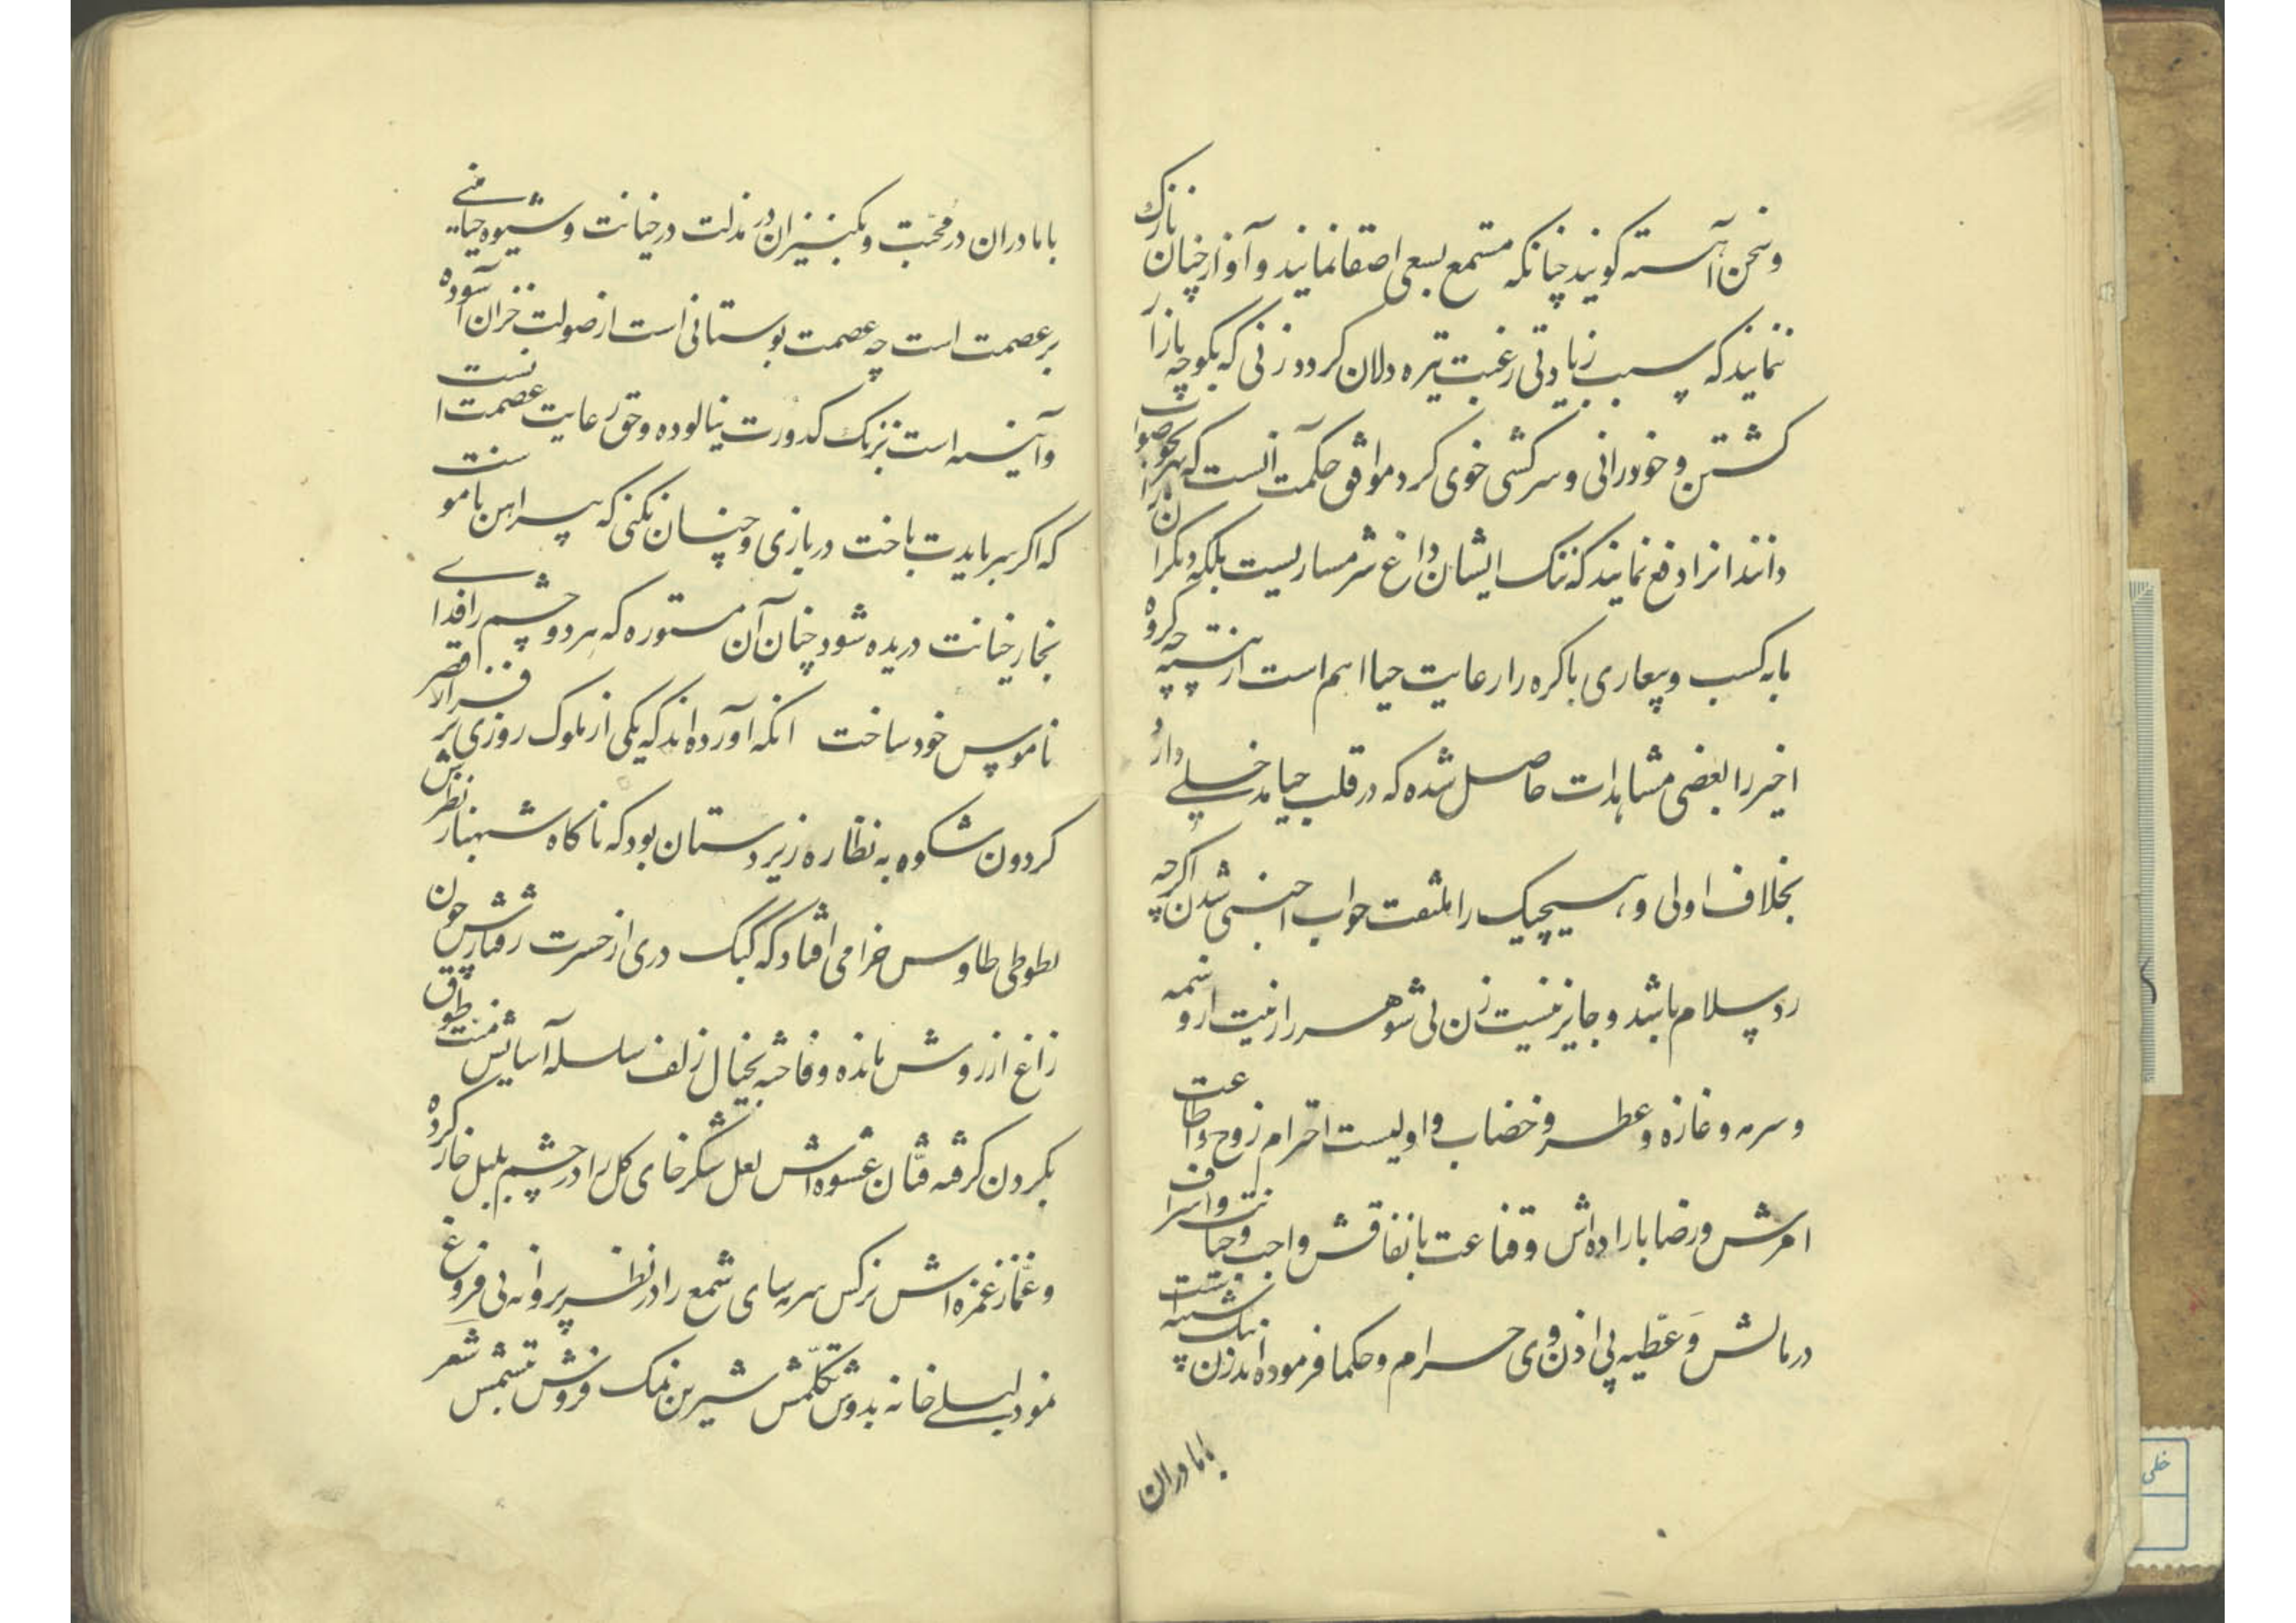 وسخن آهسته کویند چنانکه مستمع بسعی اصقا نمایند و آواز چنان نازک
ننمایند که سبب زیادتی رغبت تیره دلان کردد زنی که بکوچه بازار
کشتن و خودرانی و سرکشی خوی کرد موافق حکمت آنست که بهر نحو صواب
دانند انرا دفع نمایند که ننک ایشان داغ شرمساریست بلکه دیکرانرا
بابه کسب وبیعاری باکره را رعایت حیا اهم است از ثیبه چه کروه
اخیر را بعضی مشاهدات حاصل شده که در قلب حیا مدخلی دارد
بخلاف اولی و هیچیک را ملتفت جواب اجنبی شدن اکرچه
رد سلام باشد و جایز نیست زن بی شوهر را زینت از وسمه
و سرمه و غازه و عطر و خضاب و اولیست احترام زوج و اطاعت
امرش و رضا باراده‌اش و قناعت بانفاقش واجب و خیانت و اسراف
در مالش وَ عَطیه بی اذن وی حرام و حکما فرموده‌اند زن نیک شبیه است
بامادران
بامادران در محبت و بکنیزان در مذلت در خیانت و شیوه حیا مبنی
بر عصمت است چه عصمت بوستانی است از صولت خزان آسوده
و آئینه است بزنک کدورت نیالوده و حق رعایت عصمت آنست
که اکر سر بایدت باخت دربازی و چنان نکنی که پیراهن ناموست
بخار خیانت دریده شود چنان آن مستوره که هر دو چشم را فدای
ناموس خود ساخت انکه آورده‌اند که یکی از ملوک روزی بر فراز قصر
کردون شکوه به نظاره زیردستان بود که ناکاه شهباز نظرش
بطوطی طاوس خرامی افتاد که کبک دری از حسرت رفتارش چون
زاغ از روش مانده و فاخته بخیال زلف سلسله آسایش طوق منت
بکردن کرفته فتّان عشوه‌اش لعل شکرخای کل را در چشم بلبل خار کرده
و غمّاز غمزه‌اش نرکس سرمه سای شمع را در نظر پروانه بی فروغ
نموده لیلی خانه بدوش تکلّمش شیرین نمک فروش تبسّمش شعر